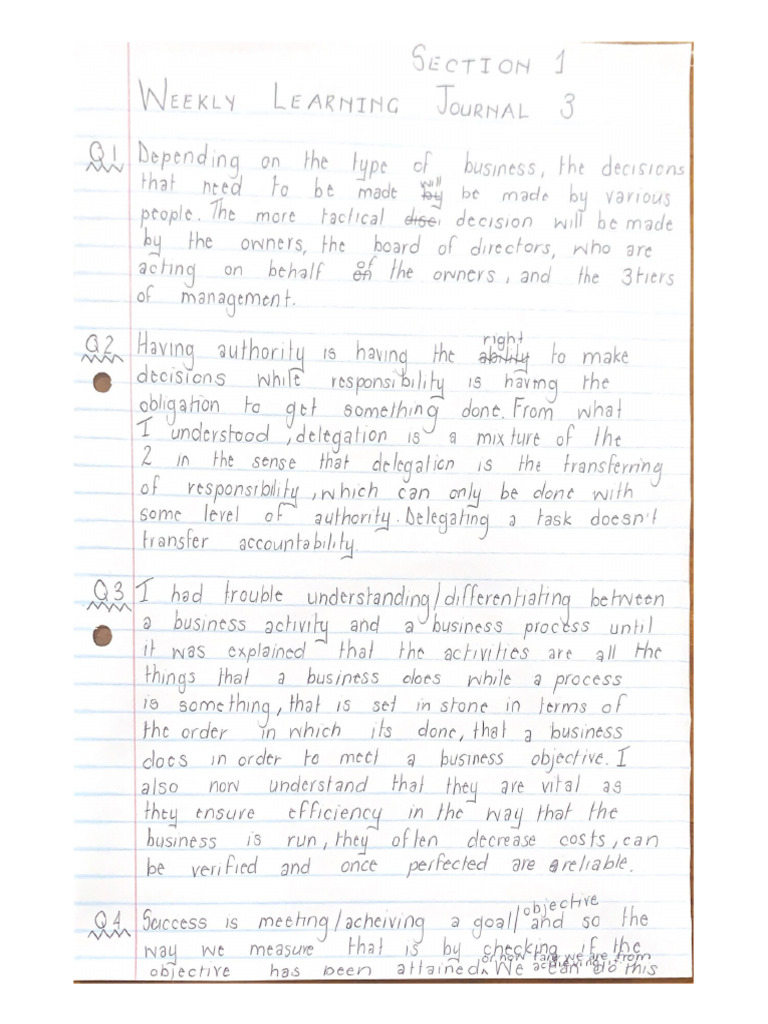 SECTION 1
WEEKLY LEARNING JOURNAL 3
Q1 Depending on the type of business, the decisions
that need to be made by will be made by various
people. The more tactical disc. decision will be made
by the owners, the board of directors, who are
acting on behalf on of the owners, and the 3 tiers
of management.
Q2 Having authority is having the ability right to make
decisions while responsibility is having the
obligation to get something done. From what
I understood, delegation is a mixture of the
2 in the sense that delegation is the transferring
of responsibility, which can only be done with
some level of authority. Delegating a task doesn't
transfer accountability.
Q3 I had trouble understanding/differentiating between
a business activity and a business process until
it was explained that the activities are all the
things that a business does while a process
is something, that is set in stone in terms of
the order in which its done, that a business
does in order to meet a business objective. I
also now understand that they are vital as
they ensure efficiency in the way that the
business is run, they often decrease costs, can
be verified and once perfected are reliable.
Q4 Success is meeting/acheiving a goal/objective and so the
way we measure that is by checking if the
objective has been attained or how far we are from achieving it. We can do this